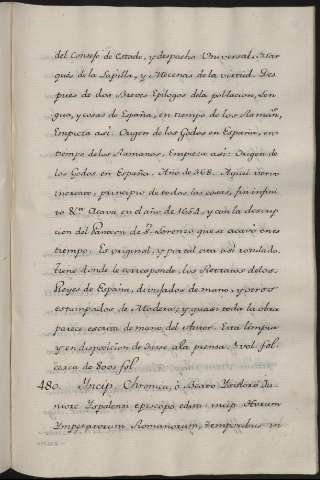 del Consejo de Estado, y despacho Universal, Mar
qués de la Lapilla, y Mecenas de la virtud. Des
pues de dos Breves Epilogos dela poblacion, len
gua, y cosas de España, en tiempo de los Roman.s
Empieza asi: Origen de los Godos en España, en
tiempo de los Romanos, Empieza asi: Origen de
los Godos en España. Año de 368. Aqui
principio de todas las cosas, fin infini
to &.ª Acava en el año de 1654, y con la descrip
cion del Panteon de S. Lorenzo que se acavó en es
tiempo. Es original, y por tal esta asi rotulado.
Tiene donde le corresponde, los Retratos delos
Reyes de España, dibujados de mano, y otros
estampados de Madera; y quasi toda la obra
parece escrita de mano del Autor. Esta limpia
y en disposicion de darse ala prensa. 1 vol. fol.
cerca de 800 fol.
480. Yncip. Chronica, ò Beato Ysidoro Ju-
niore Yspalensi episcopo edita: incip.
Ymperatorum Romanorum, temporibus in